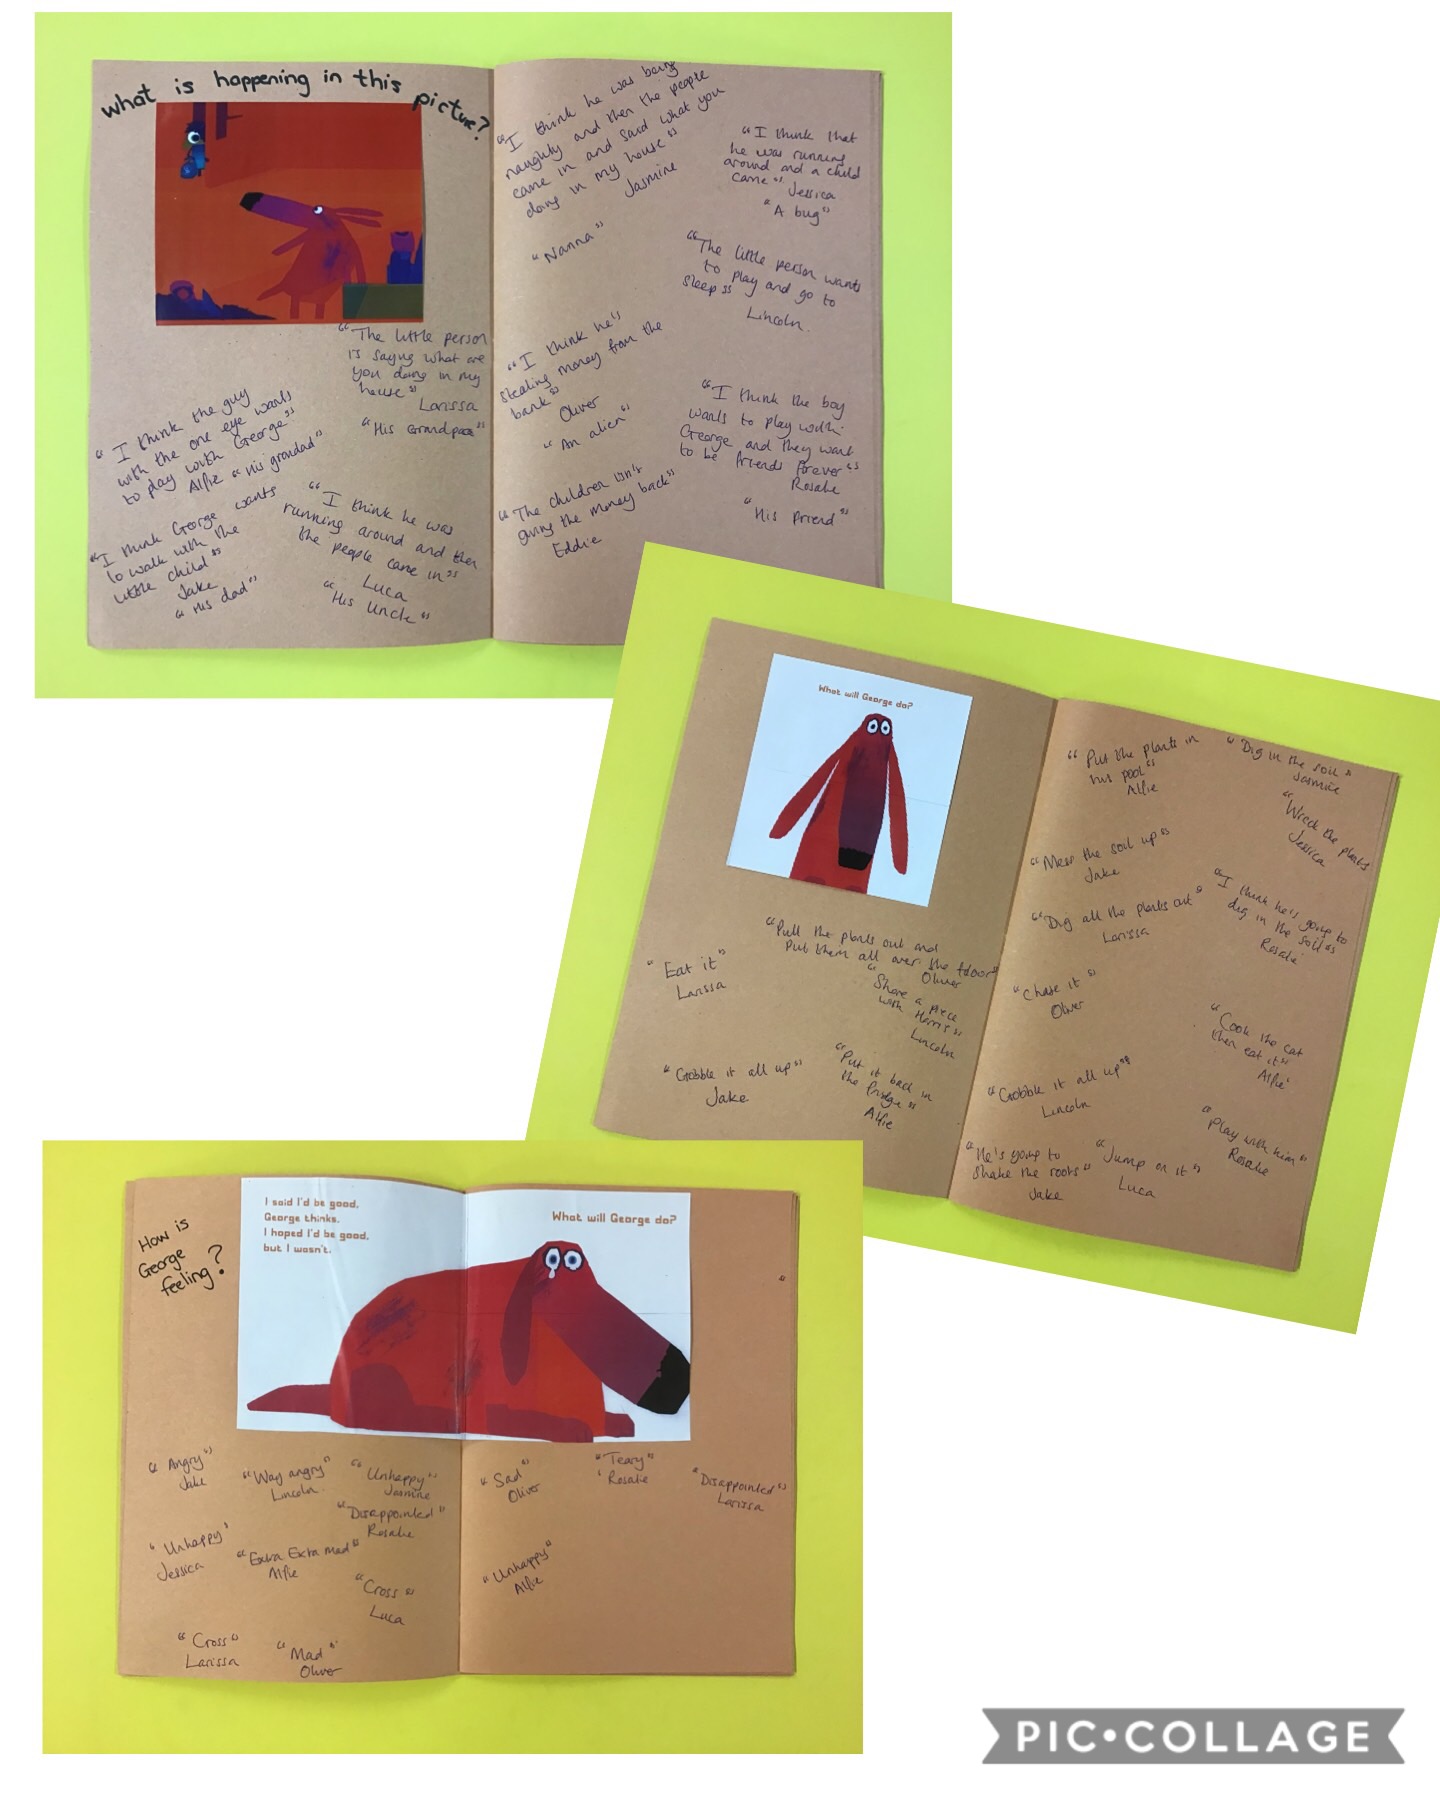 What is happening in this picture?
"The little person
is saying what are
you doing in my
house"
Larissa
"His Grandpaa"
"I think the guy
with the one eye wants
to play with George"
Alfie "His grandad"
"I think George wants
to walk with the
little child"
Jake
"His dad"
"I think he was
running around and then
the people came in"
Luca
"His Uncle"
"I think he was being
naughty and then the people
came in and said what you
doing in my house"
Jasmine
"Nanna"
"I think he's
stealing money from the
bank"
Oliver
"An alien"
"The children isn't
giving the money back"
Eddie
"I think that
he was running
around and a child
came" Jessica
"A bug"
"The little person wants
to play and go to
sleep"
Lincoln.
"I think the boy
wants to play with
George and they want
to be friends forever"
Rosalie
"His friend"
What will George do?
"Pull the plants out and
put them all over the floor"
Oliver
"Eat it"
Larissa
"Share a piece
with Harris"
Lincoln
"Gobble it all up"
Jake
"Put it back in
the fridge"
Alfie
"Put the plants in
his pool"
Alfie
"Dig in the soil"
Jasmine
"Wreck the plants
Jessica
"Mess the soil up"
Jake
"Dig all the plants out"
Larissa
"I think he's going to
dig in the soil"
Rosalie
"Chase it"
Oliver
"Cook the cat
then eat it"
Alfie
"Gobble it all up"
Lincoln
"Play with him"
Rosalie
"He's going to
shake the roots"
Jake
"Jump on it"
Luca
How is
George
feeling?
I said I'd be good,
George thinks.
I hoped I'd be good,
but I wasn't.
What will George do?
"Angry"
Jake
"Way angry"
Lincoln
"Unhappy"
Jasmine
"Disappointed"
Rosalie
"Unhappy"
Jessica
"Extra Extra mad"
Alfie
"Cross"
Luca
"Cross"
Larissa
"Mad"
Oliver
"Sad"
Oliver
"Teary"
Rosalie
"Disappointed"
Larissa
"Unhappy"
Alfie
PIC•COLLAGE